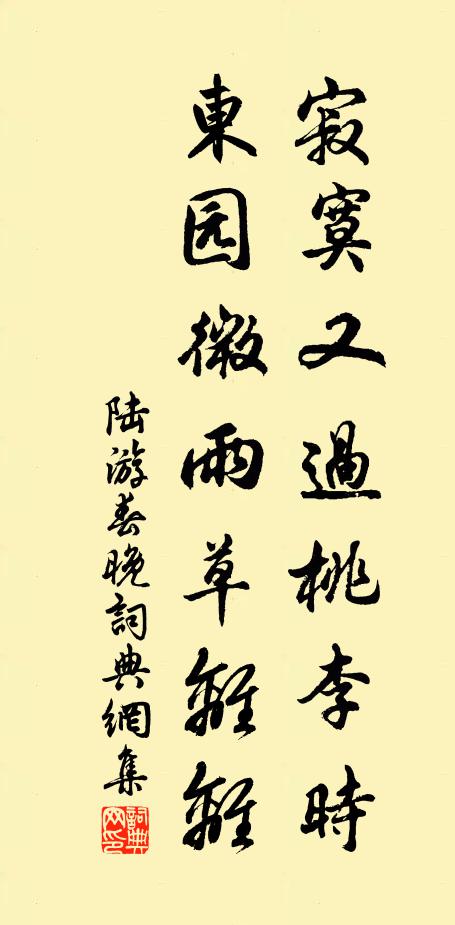 寂寞又過桃李時
東园微雨草離離
陆游春晚詞典網集
詞典网印